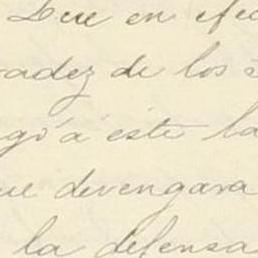 Que en efec
radez de los s
gó á éste la
ue devengara
la defensa